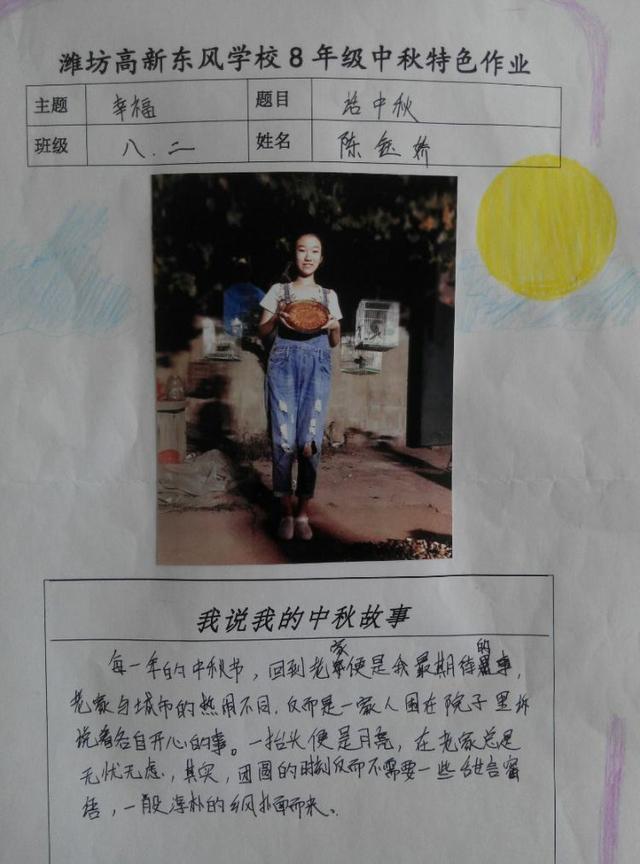 潍坊高新东风学校8年级中秋特色作业
主题 幸福 题目 拾中秋
班级 八.二 姓名 陈钰娇
我说我的中秋故事
每一年的中秋节，回到老家便是我最期待的事，
老家与城市的热闹不同，反而是一家人围在院子里诉
说着各自开心的事。一抬头便是月亮，在老家总是
无忧无虑，其实，团圆的时刻反而不需要一些甜言蜜
语，一股淳朴的乡风扑面而来。